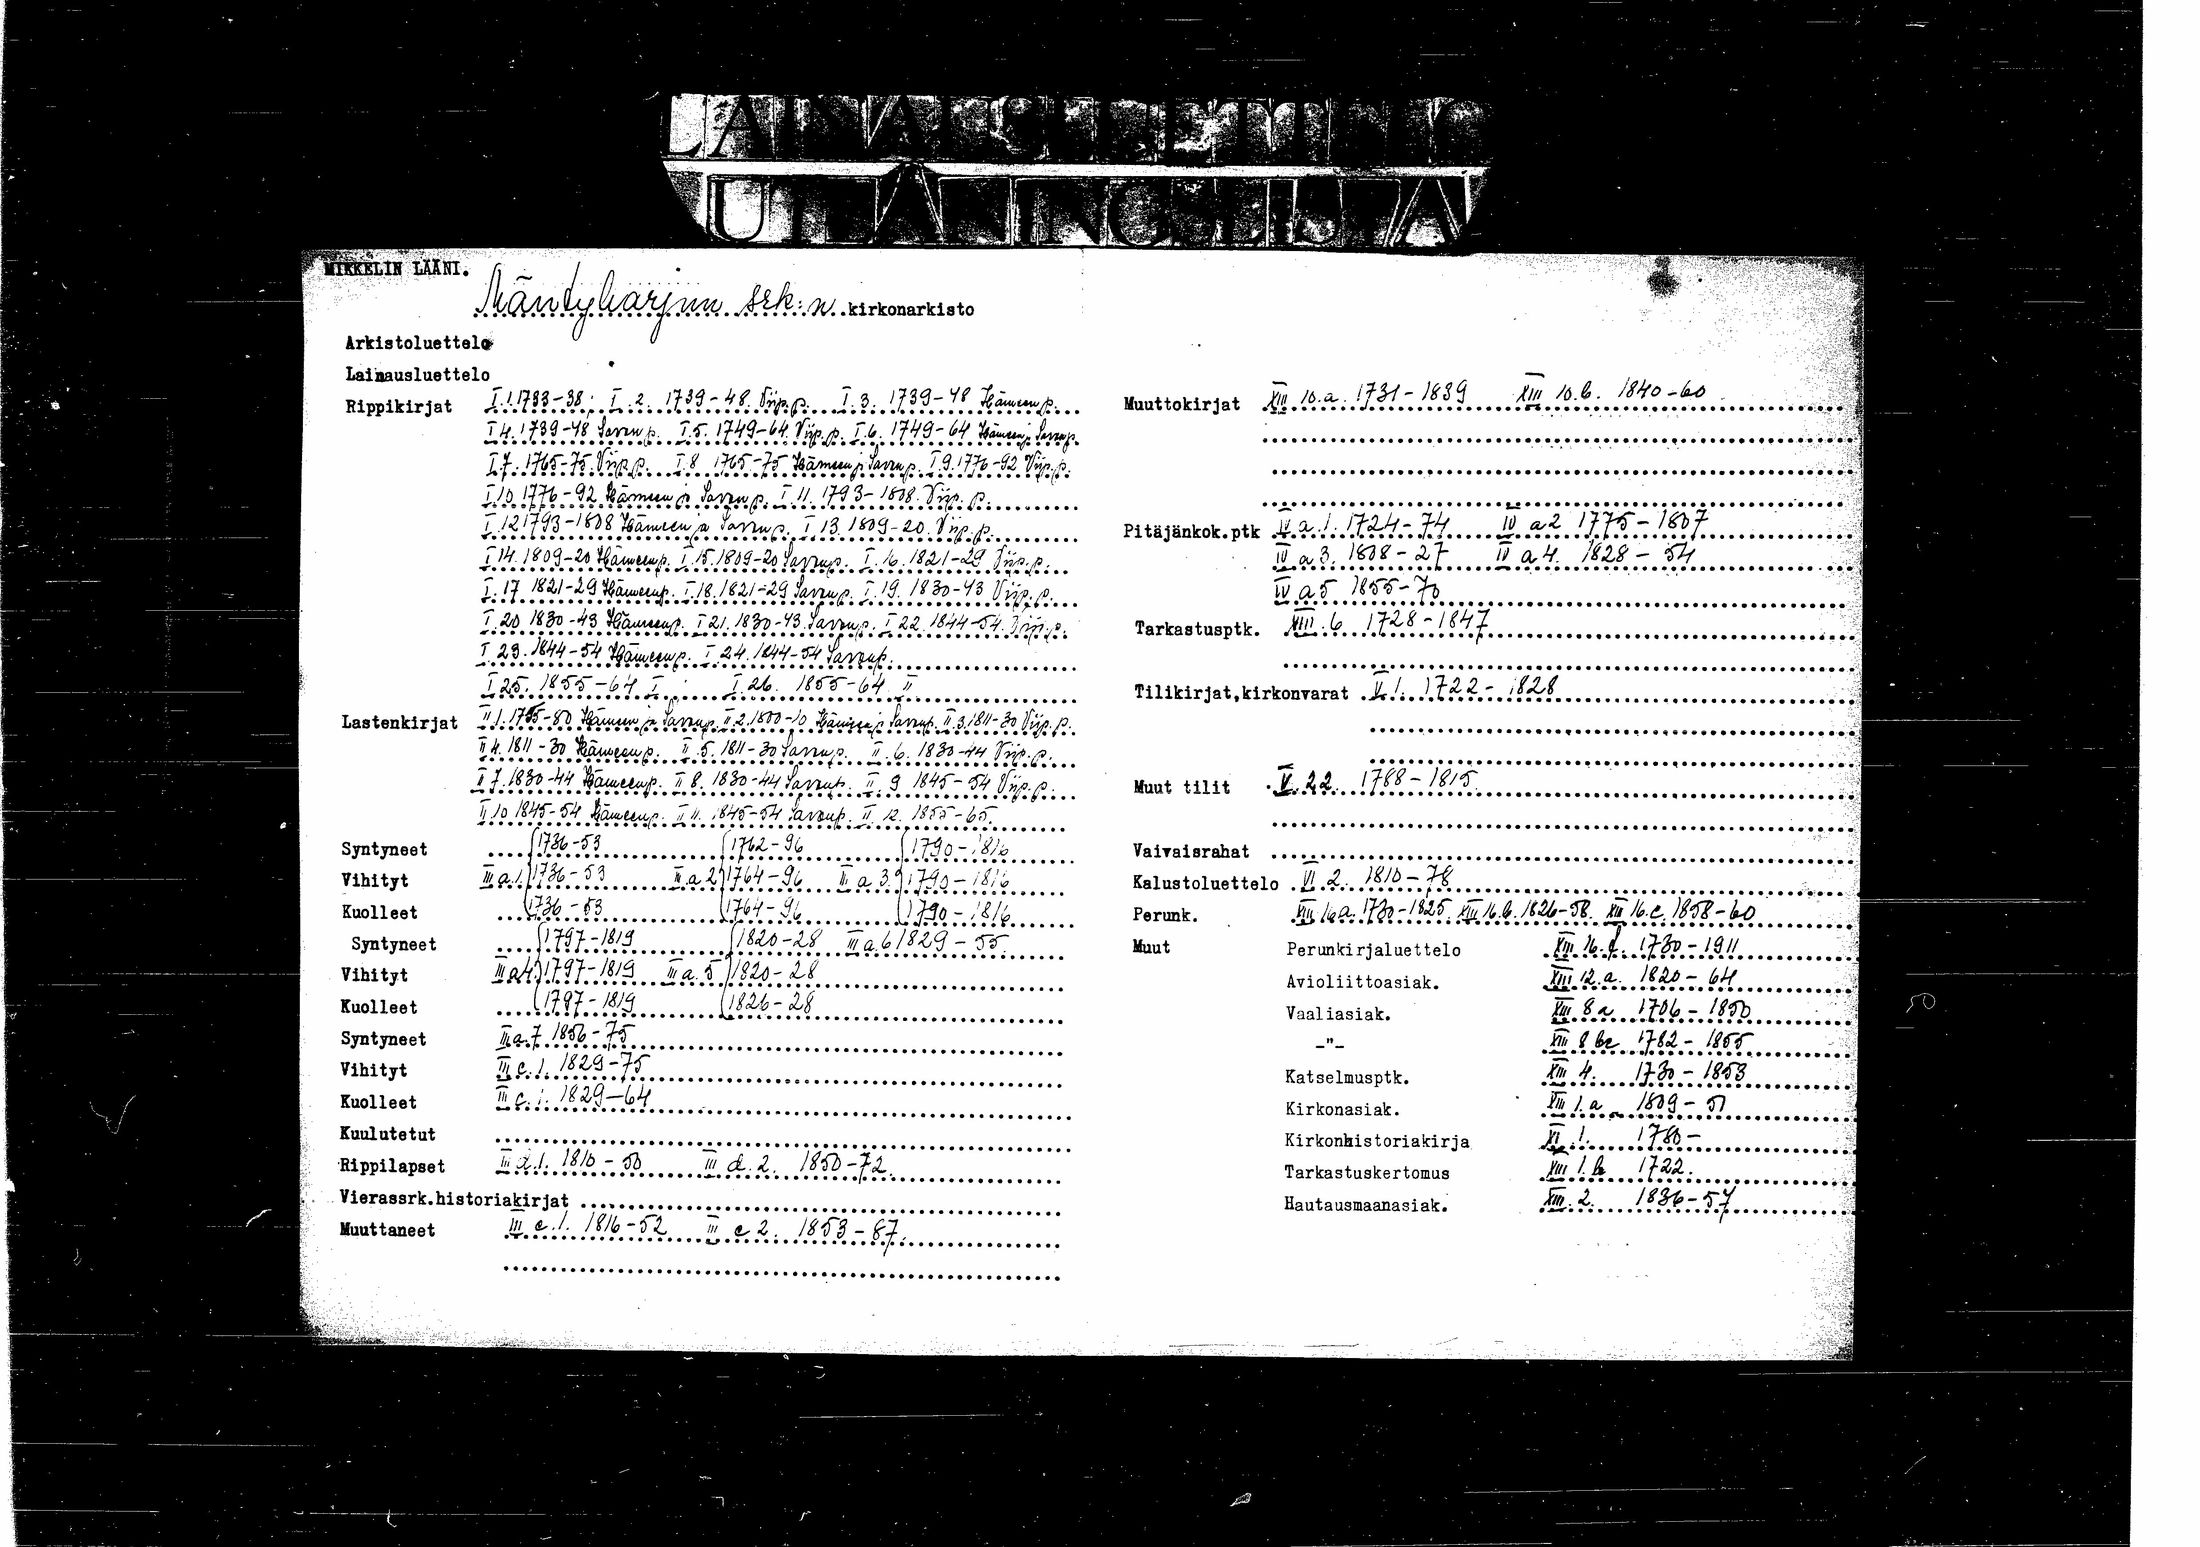 LAINAUSLUETTELO
UTLÅNINGSLISTA
MIKKELIN LÄÄNI.
Mäntyharjun srk:n kirkonarkisto
Arkistoluettelo
Lainausluettelo
Rippikirjat I.1.1733-38. I.2. 1739-48. Viip.p. I.3. 1739-48 Hämeen p.
I 4. 1739-48 Savon p. I.5. 1749-64. Viip.p. I.6. 1749-64 Hämeen ja Savon p.
I.7. 1765-75. Viip.p. I.8 1765-75 Hämeen ja Savon p. I 9. 1776-92 Viip.p.
I 10 1776-92 Hämeen ja Savon p. I.11. 1793-1808. Viip. p.
I.12 1793-1808 Hämeen ja Savon p. I 13. 1809-20. Viip.p.
I 14. 1809-20 Hämeen p. I 15. 1809-20 Savon p. I.16. 1821-29 Viip.p.
I.17 1821-29 Hämeen p. I.18. 1821-29 Savon p. I.19. 1830-43 Viip.p.
I.20 1830-43 Hämeen p. I 21. 1830-43. Savon p. I 22. 1844-54. Viip.p.
I 23. 1844-54 Hämeen p. I 24. 1844-54 Savon p.
I 25. 1855-64 I I.26. 1855-64 II
Lastenkirjat II 1. -80 Hämeen ja Savon p. II 2. 1800-10 Hämeen ja Savon p. II 3. 1811-30 Viip.p.
II 4. 1811-30 Hämeen p. II.5. 1811-30 Savon p. II.6. 1830-44 Viip.p.
II 7. 1830-44 Hämeen p. II 8. 1830-44 Savon p. II.9 1845-54 Viip.p.
II 10 1845-54 Hämeen p. II 11. 1845-54 Savon p. II.12. 1855-65.
Syntyneet 1736-53 1762-96 1790-1816
Vihityt III a.1. 1736-53 III a 2 1764-96 III a 3. 1790-1816
Kuolleet 1736-53 1764-96 1790-1816
Syntyneet 1797-1819 1820-28 III a.6 1829-55.
Vihityt III a 4 1797-1819 III a.5 1820-28
Kuolleet 1797-1819 1826-28
Syntyneet III a.7 1856-75
Vihityt III c.1. 1829-75
Kuolleet III c.1. 1829-64
Kuulutetut
Rippilapset III d.1. 1810-50 III d.2. 1850-72.
Vierassrk.historiakirjat
Muuttaneet III e.1. 1816-52 III e 2. 1853-87.
Muuttokirjat XIII 10.a. 1731-1839 XIII 10.b. 1840-60
Pitäjänkok.ptk IV a.1. 1724-74 IV a 2 1775-1807
IV a 3. 1808-27 IV a 4. 1828-54
IV a 5 1855-70
Tarkastusptk. XIII.6 1728-1847
Tilikirjat,kirkonvarat V.1. 1722-1828
Muut tilit V.22. 1788-1815.
Vaivaisrahat
Kalustoluettelo VI 2. 1810-78
Perunk. XIII 16a. 1730-1825. XIII 16.b. 1826-58. XIII 16.c. 1858-60
Muut Perunkirjaluettelo XIII 16.f. 1730-1911
Avioliittoasiak. XIII 12.a. 1820-64
Vaaliasiak. XIII 8 a 1706-1850
-"- XIII 8 1782-1855
Katselmusptk. XIII 4. 1730-1853
Kirkonasiak. XIII 1.a 1809-51
Kirkonhistoriakirja XI.1. 1780-
Tarkastuskertomus XIII 1.b 1722.
Hautausmaanasiak. XIII.2. 1836-57
50